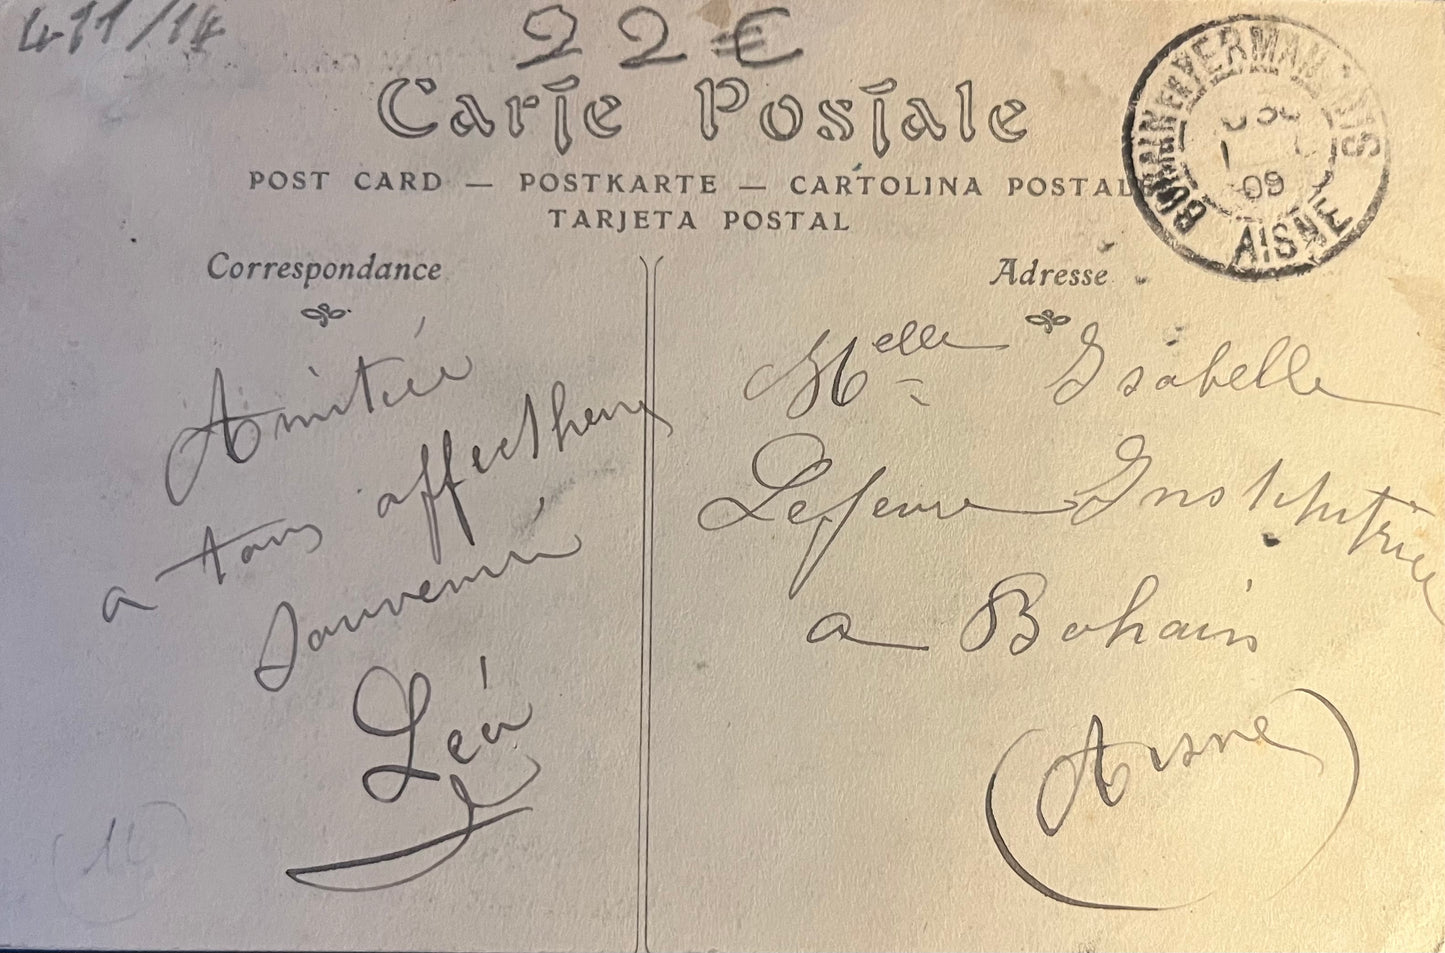 411/14
22€
Carte Postale
POST CARD — POSTKARTE — CARTOLINA POSTALE
TARJETA POSTAL
BOHAIN EN VERMANDOIS
09
AISNE
Correspondance
Amitié
a tous affectheux
Souvenir
Léon
Adresse
Melle Isabelle
Lefevre Institutrice
a Bohain
(Aisne)